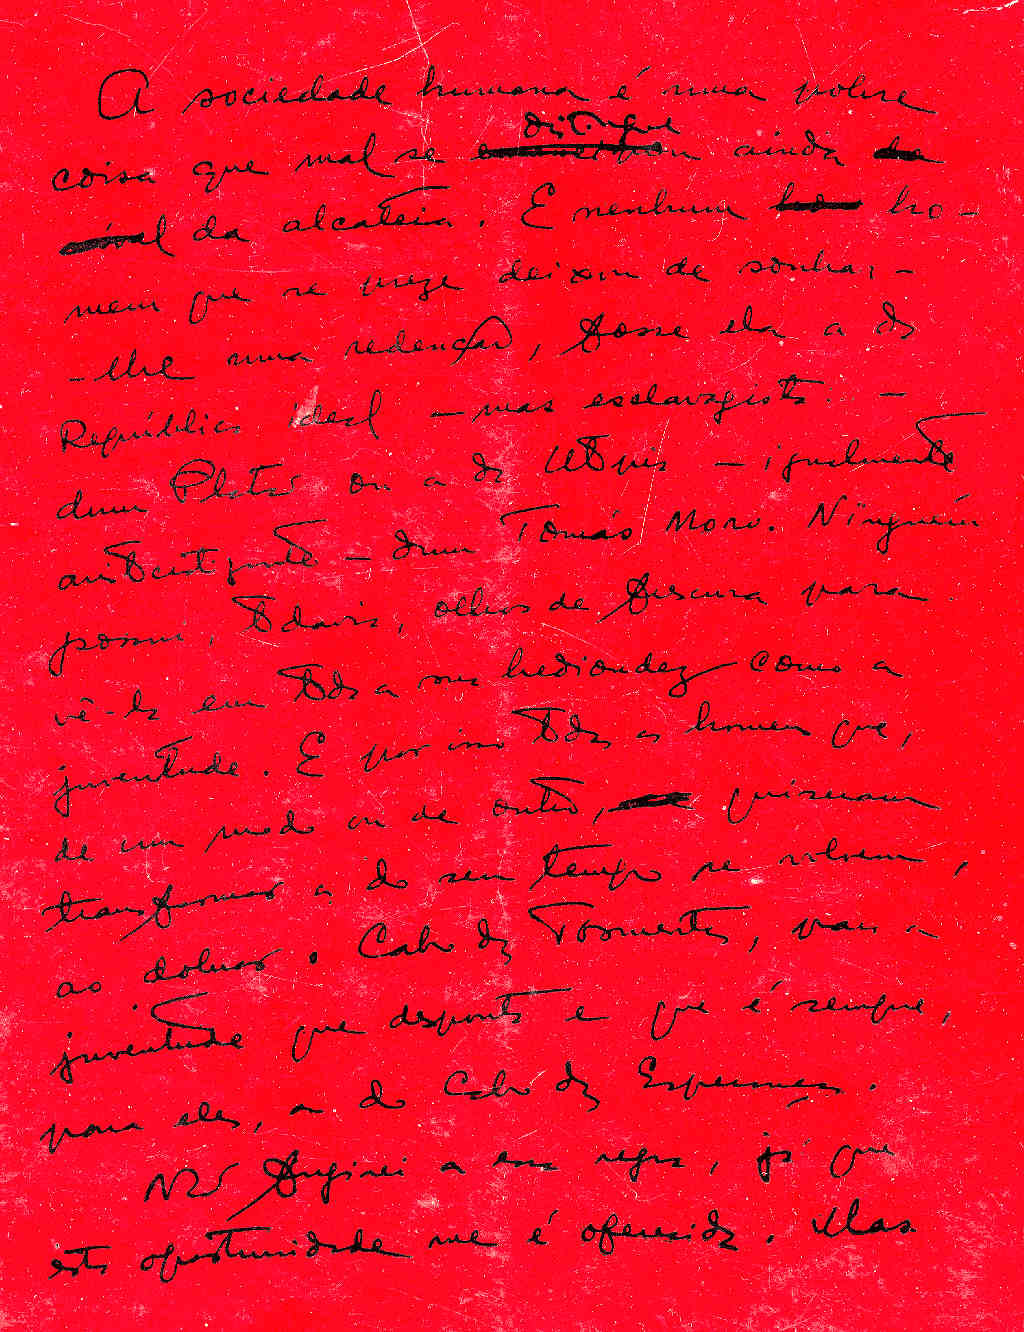 A sociedade humana é uma pobre
coisa que mal se distingue ainda
da alcateia. E nenhum ho-
mem que se preze deixou de sonhar-
-lhe uma redenção, fosse ela a da
República ideal – mas esclavagista –
dum Platão ou a da Utopia – igualmente
– dum Tomás Moro. Ninguém
possui, todavia, olhos de frescura para
vê-la em toda a sua hediondez como a
juventude. E por isso todos os homens que,
de um modo ou de outro, quiseram
transformar a do seu tempo se volvem,
ao dobrar o Cabo das Tormentas, para a
juventude que desponta e que é sempre,
para eles, a do Cabo das Esperanças.
Não fugirei a essa regra, já que
esta oportunidade me é oferecida. Mas